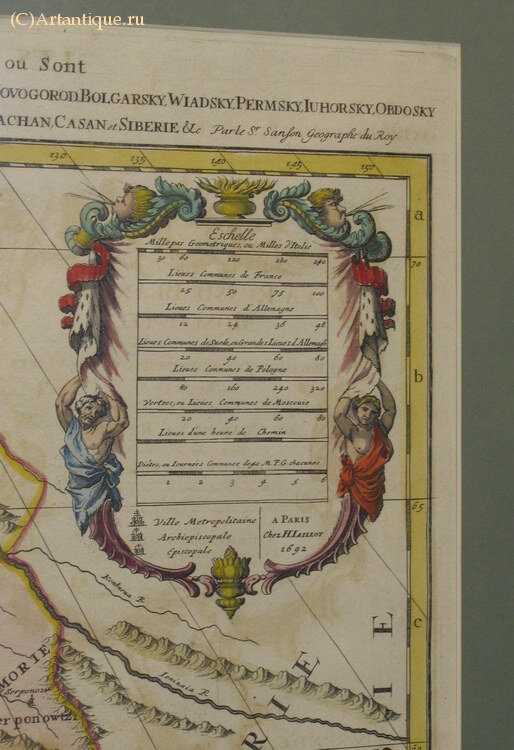 (C)Artantique.ru
ou Sont
OVOGOROD, BOLGARSKY, WIADSKY, PERMSKY, IUHORSKY, OBDOSKY
ACHAN, CASAN et SIBERIE &c Par le Sr. Sanson Geographe du Roy
130 135 140 145 150
a
70
b
65
c
Eschelle
Mille pas Geometriques, ou Milles d'Italie
30 60 120 180 240
Lieues Communes de France
25 50 75 100
Lieues Communes d'Allemagne
12 24 36 48
Lieues Communes de Suede, ou Grandes Lieues d'Allemagne
20 40 60 80
Lieues Communes de Pologne
80 160 240 320
Verstes, ou Lieues Communes de Moscouie
20 40 60 80
Lieues d'une heure de Chemin
Diétes, ou Iournées Communes de 20 M. P. G. chacunes
1 2 3 4 5 6
Ville Metropolitaine
Archiepiscopale
Episcopale
A PARIS
Chez H. IAILLOT
1692
R.
Ienisseia R.
MORIE
erponowizi
RIE
IE